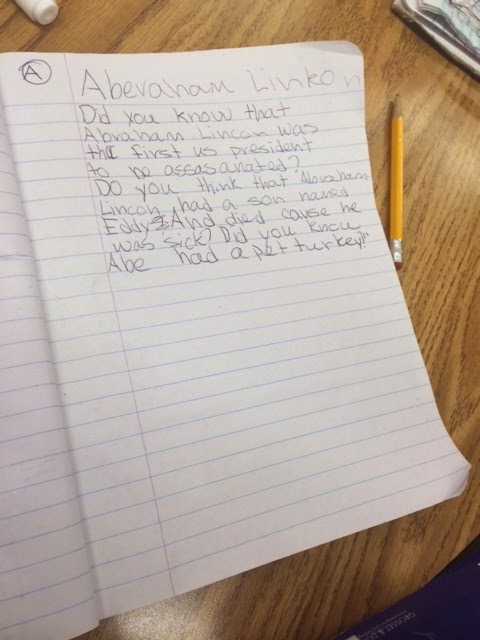 A
Aberaham Linkon
Did you know that
Abraham Lincon was
the first us president
to be assasanated?
Do you think that Abraham
Lincon had a son named
Eddy? And died cause he
was sick? Did you know
Abe had a pet turkey?
GROSSET &